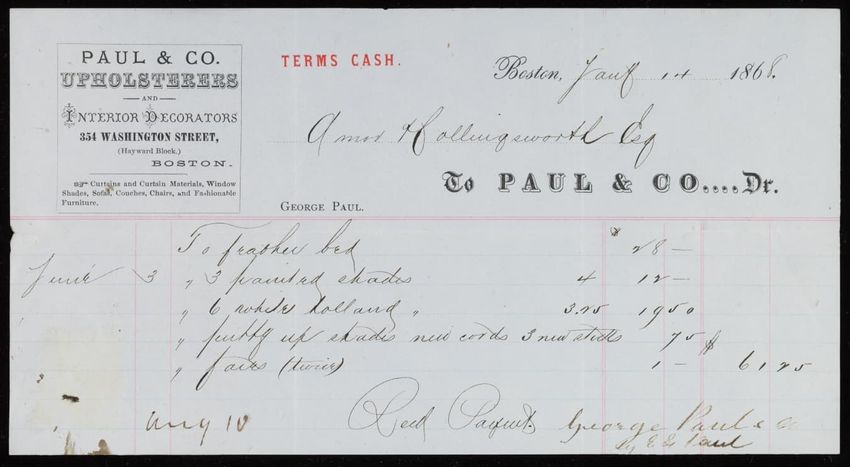 PAUL & CO.
UPHOLSTERERS
AND
INTERIOR DECORATORS
354 WASHINGTON STREET,
(Hayward Block,)
BOSTON.
☞ Curtains and Curtain Materials, Window
Shades, Sofas, Couches, Chairs, and Fashionable
Furniture.
TERMS CASH.
Boston, 14 1868.
Amor Hollingsworth Esq
To PAUL & CO.... Dr.
GEORGE PAUL.
To feather bed $ 28 —
June 3 " 3 painted shades 4 12 —
" 6 white holland " 3.25 19 50
" putty up shades new cords 3 new sticks 75 $
" fairs (twice) 1 — 61 25
Aug 10 Recd Paymt. George Paul & Co
by E E Paul